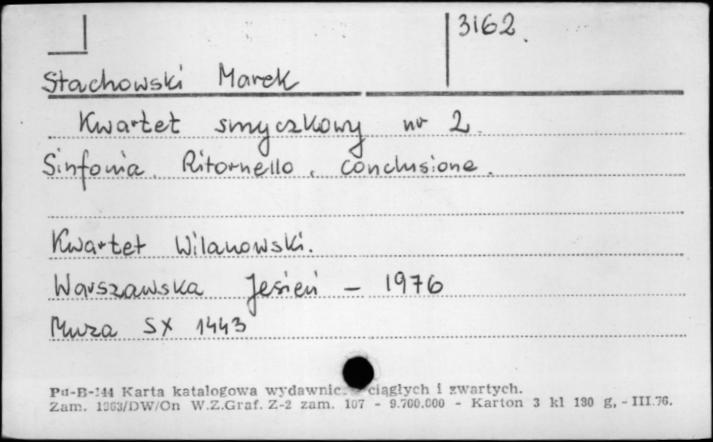 3162
Stachowski Marek
Kwartet smyczkowy nr 2.
Sinfonia, Ritornello, conclusione.
Kwartet Wilanowski.
Warszawska Jesień - 1976
Muza SX 1443
Pu-B-144 Karta katalogowa wydawnic. ciągłych i zwartych.
Zam. 1363/DW/On W.Z.Graf. Z-2 zam. 107 - 9.700.000 - Karton 3 kl 180 g, - III.76.